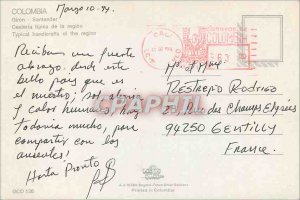 COLOMBIA
Marzo 10. 94.
Giron - Santander
Cestería típica de la región
Typical handicrafts of the region
Reciban un fuerte
abrazo desde este
bello país que es
el nuestro; sol alegría
y calor humano, hay
todavía mucho, para
compartir con los
ausentes!
Hasta Pronto
CALI
COLOMBIA
Mr et Mme
Restrepo Rodrigo
5, Rue des Champs Elysées
94250 Gentilly
France.
Printed in Colombia